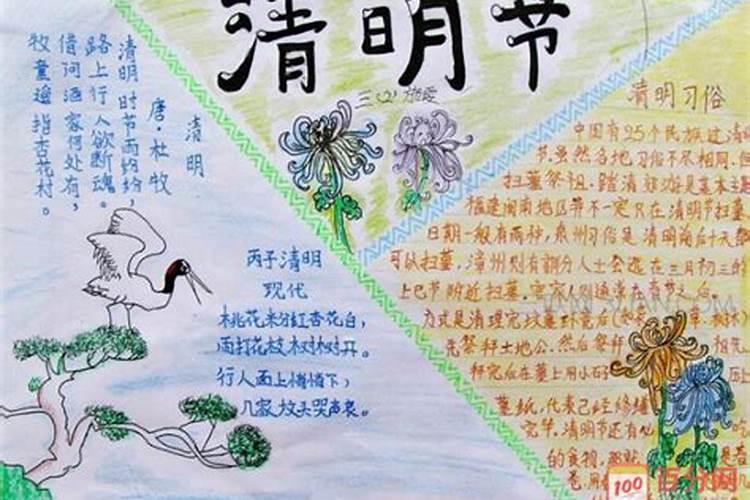 清明节
三(2)
清明
唐·杜牧
清明时节雨纷纷，
路上行人欲断魂。
借问酒家何处有，
牧童遥指杏花村。
丙子清明
现代
桃花米分红杏花白，
雨打花枝树树丹。
行人面上悄悄下，
几家坟头哭声哀。
清明习俗
中国有25个民族过清
节，虽然各地习俗不尽相同，但
扫墓祭祖、踏清郊游是基本主
福建闽南地区节不一定只在清明节扫墓
日期一般有两种，泉州习俗是清明前后十天都
可以扫墓，漳州则有部分人士会选在三月初三的
上巳节附近扫墓，客家人则通常在春节之后，
方式是清理完坟墓环境后
先祭拜土地公，然后祭拜 祖先
拜完后在墓上用小石子 压上
墓纸，代表已经修缮
完毕。清明节还有
的食物，那就 是
100
百分网